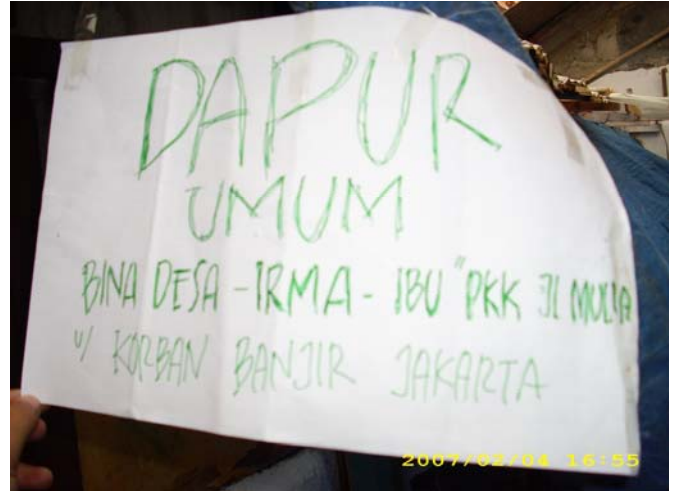 DAPUR
UMUM
BINA DESA - IRMA - IBU" PKK Jl MULIA
u/ KORBAN BANJIR JAKARTA
2007/02/04 16:55